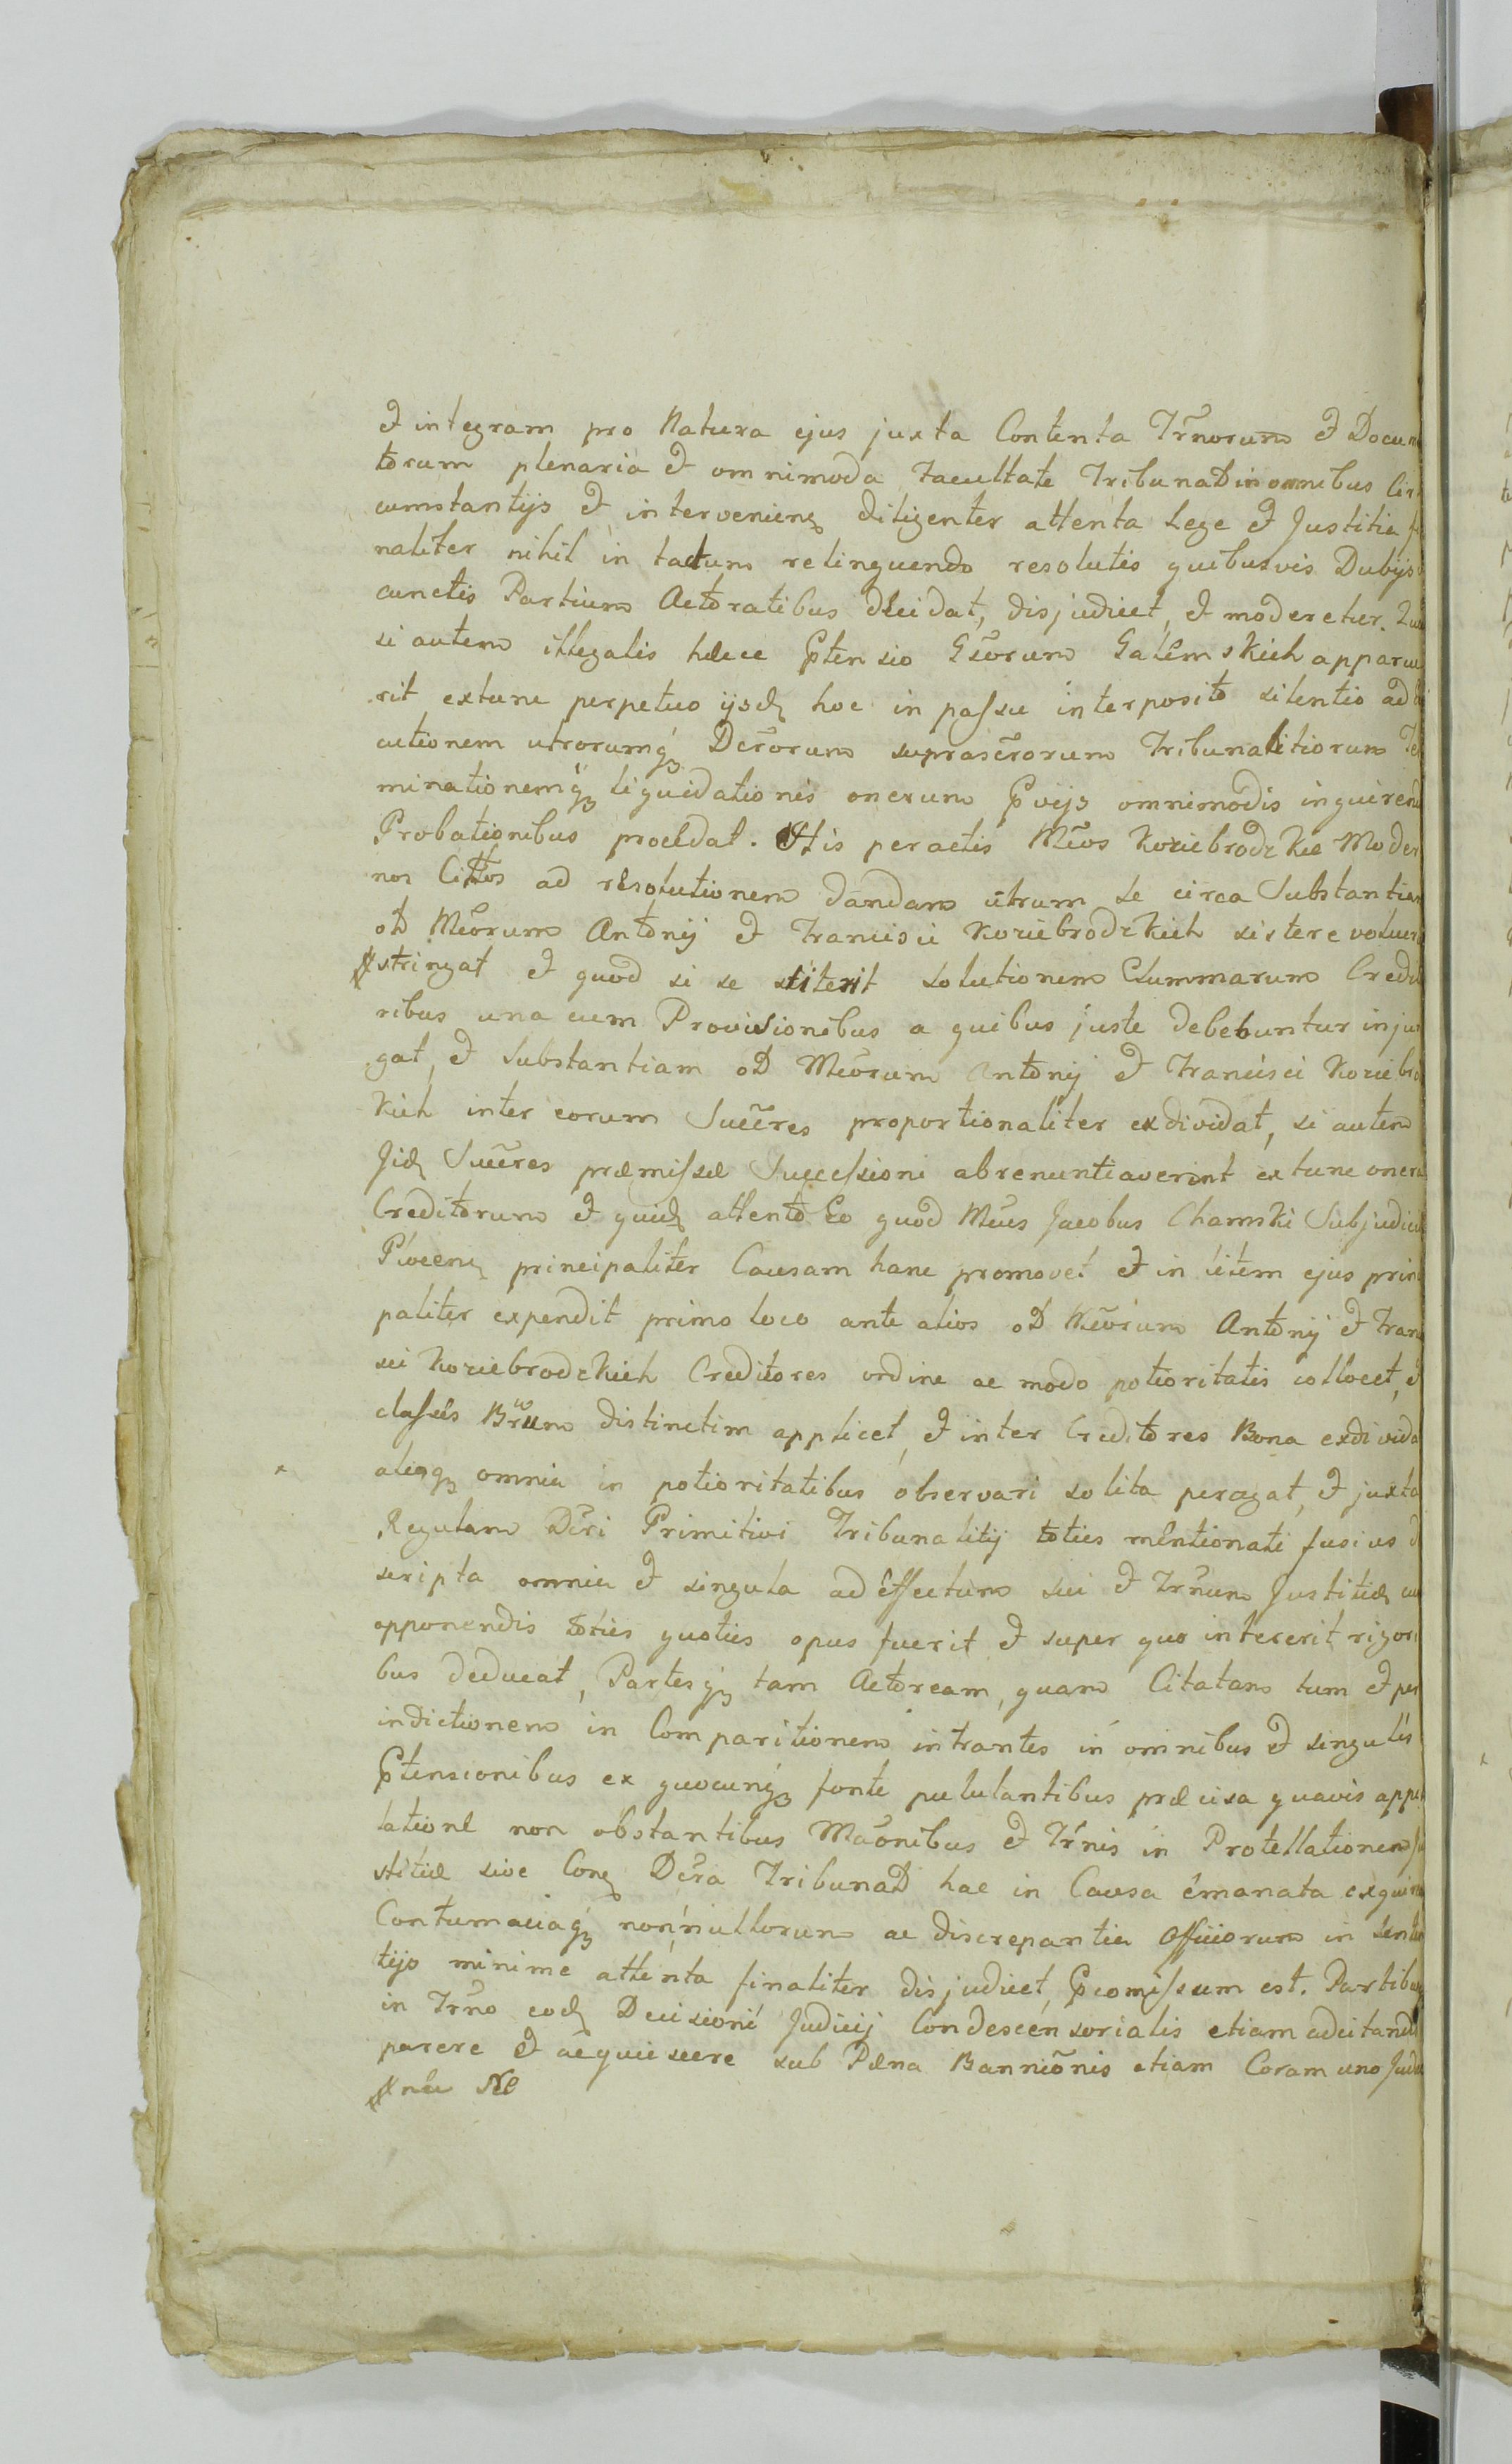 et integram pro Natura ejus juxta Contenta Tr̃norum et Docum
torum plenaria et omnimoda Facultate Tribunał in omnibus Cir
cumstantijs et intervenienȝ diligenter attenta Lege et Justitia fi
naliter nihil in tactum relinquendo resolutis quibusvis Dubijs
cunctis Partium Actoratibus decidat, disjudicet, et moderetur. Quod
si autem illegalis haece Ptensio Gsõrum Galemskich apparue
rit extunc perpetuo ijsdȝ hoc in passu interposito silentio ad
cutionem utrorumqȝ Dcr̃orum suprascr̃orum Tribunalitiorum Te
minationemqȝ liquidationis onerum Pvijs omnimodis inquirend
Probationibus procedat. His peractis Mc̃os Koziebrodzkie Moder
nos Cittos ad resolutionem dandam utrum se circa Substantiam
oł Mc̃orum Antonij et Francisci Koziebrodzkich sistere voluer
stringat et quod si se stiterit solutionem Summarum Credito
ribus una cum Provisionibus a quibus juste debebuntur injun
gat, et Substantiam oł Mc̃orum Antonij et Francisci Koziebro
kich inter eorum Succ̃res proportionaliter exdividat, si autem
Jidȝ Succ̃res praemissae Successioni abrenuntiaverint extunc onera
Creditorum et quidȝ attento Eo quod Mc̃us Jacobus Chamski Subjudex
Plocenȝ principaliter Causam hanc promovet et in litem ejus prin
paliter expendit primo loco ante alios oł Mc̃orum Antonij et Fran
sci Koziebrodzkich Creditores ordine ac modo potioritatis collocet, et
classes Br̃um distinctim applicet, et inter Creditores Bona exdivida
aliaqȝ omnia in potioritatibus observari solita peragat, et juxta
Regulam Dcr̃i Primitivi Tribunalitij toties mentionati fusius d
scripta omnia et singula ad effectum sui et Tr̃num Justitiae cu
opponendis toties quoties opus fuerit et super quo intererit rigori
bus deducat, Partesqȝ tam Actoream, quam Citatam tum et per
indictionem in Comparitionem intrantes in omnibus et singulis
Ptensionibus ex quocunqȝ fonte pululantibus praecisa quavis appe
latione non obstantibus Mõonibus et Tr̃nis in Protellationem
stitiae sive Conȝ Dcr̃a Tribunał hac in Causa emanata exquiren
Contumaciaqȝ nonnullorum ac discrepantia Officiorum in senten
tijs minime attenta finaliter disjudicet, Pcomissum est. Partibus
in Tr̃no eodȝ Decisioni Judicij Condescensorialis etiam adcitandis
parere et acquiescere sub Paena Banniõnis etiam Coram uno Judi